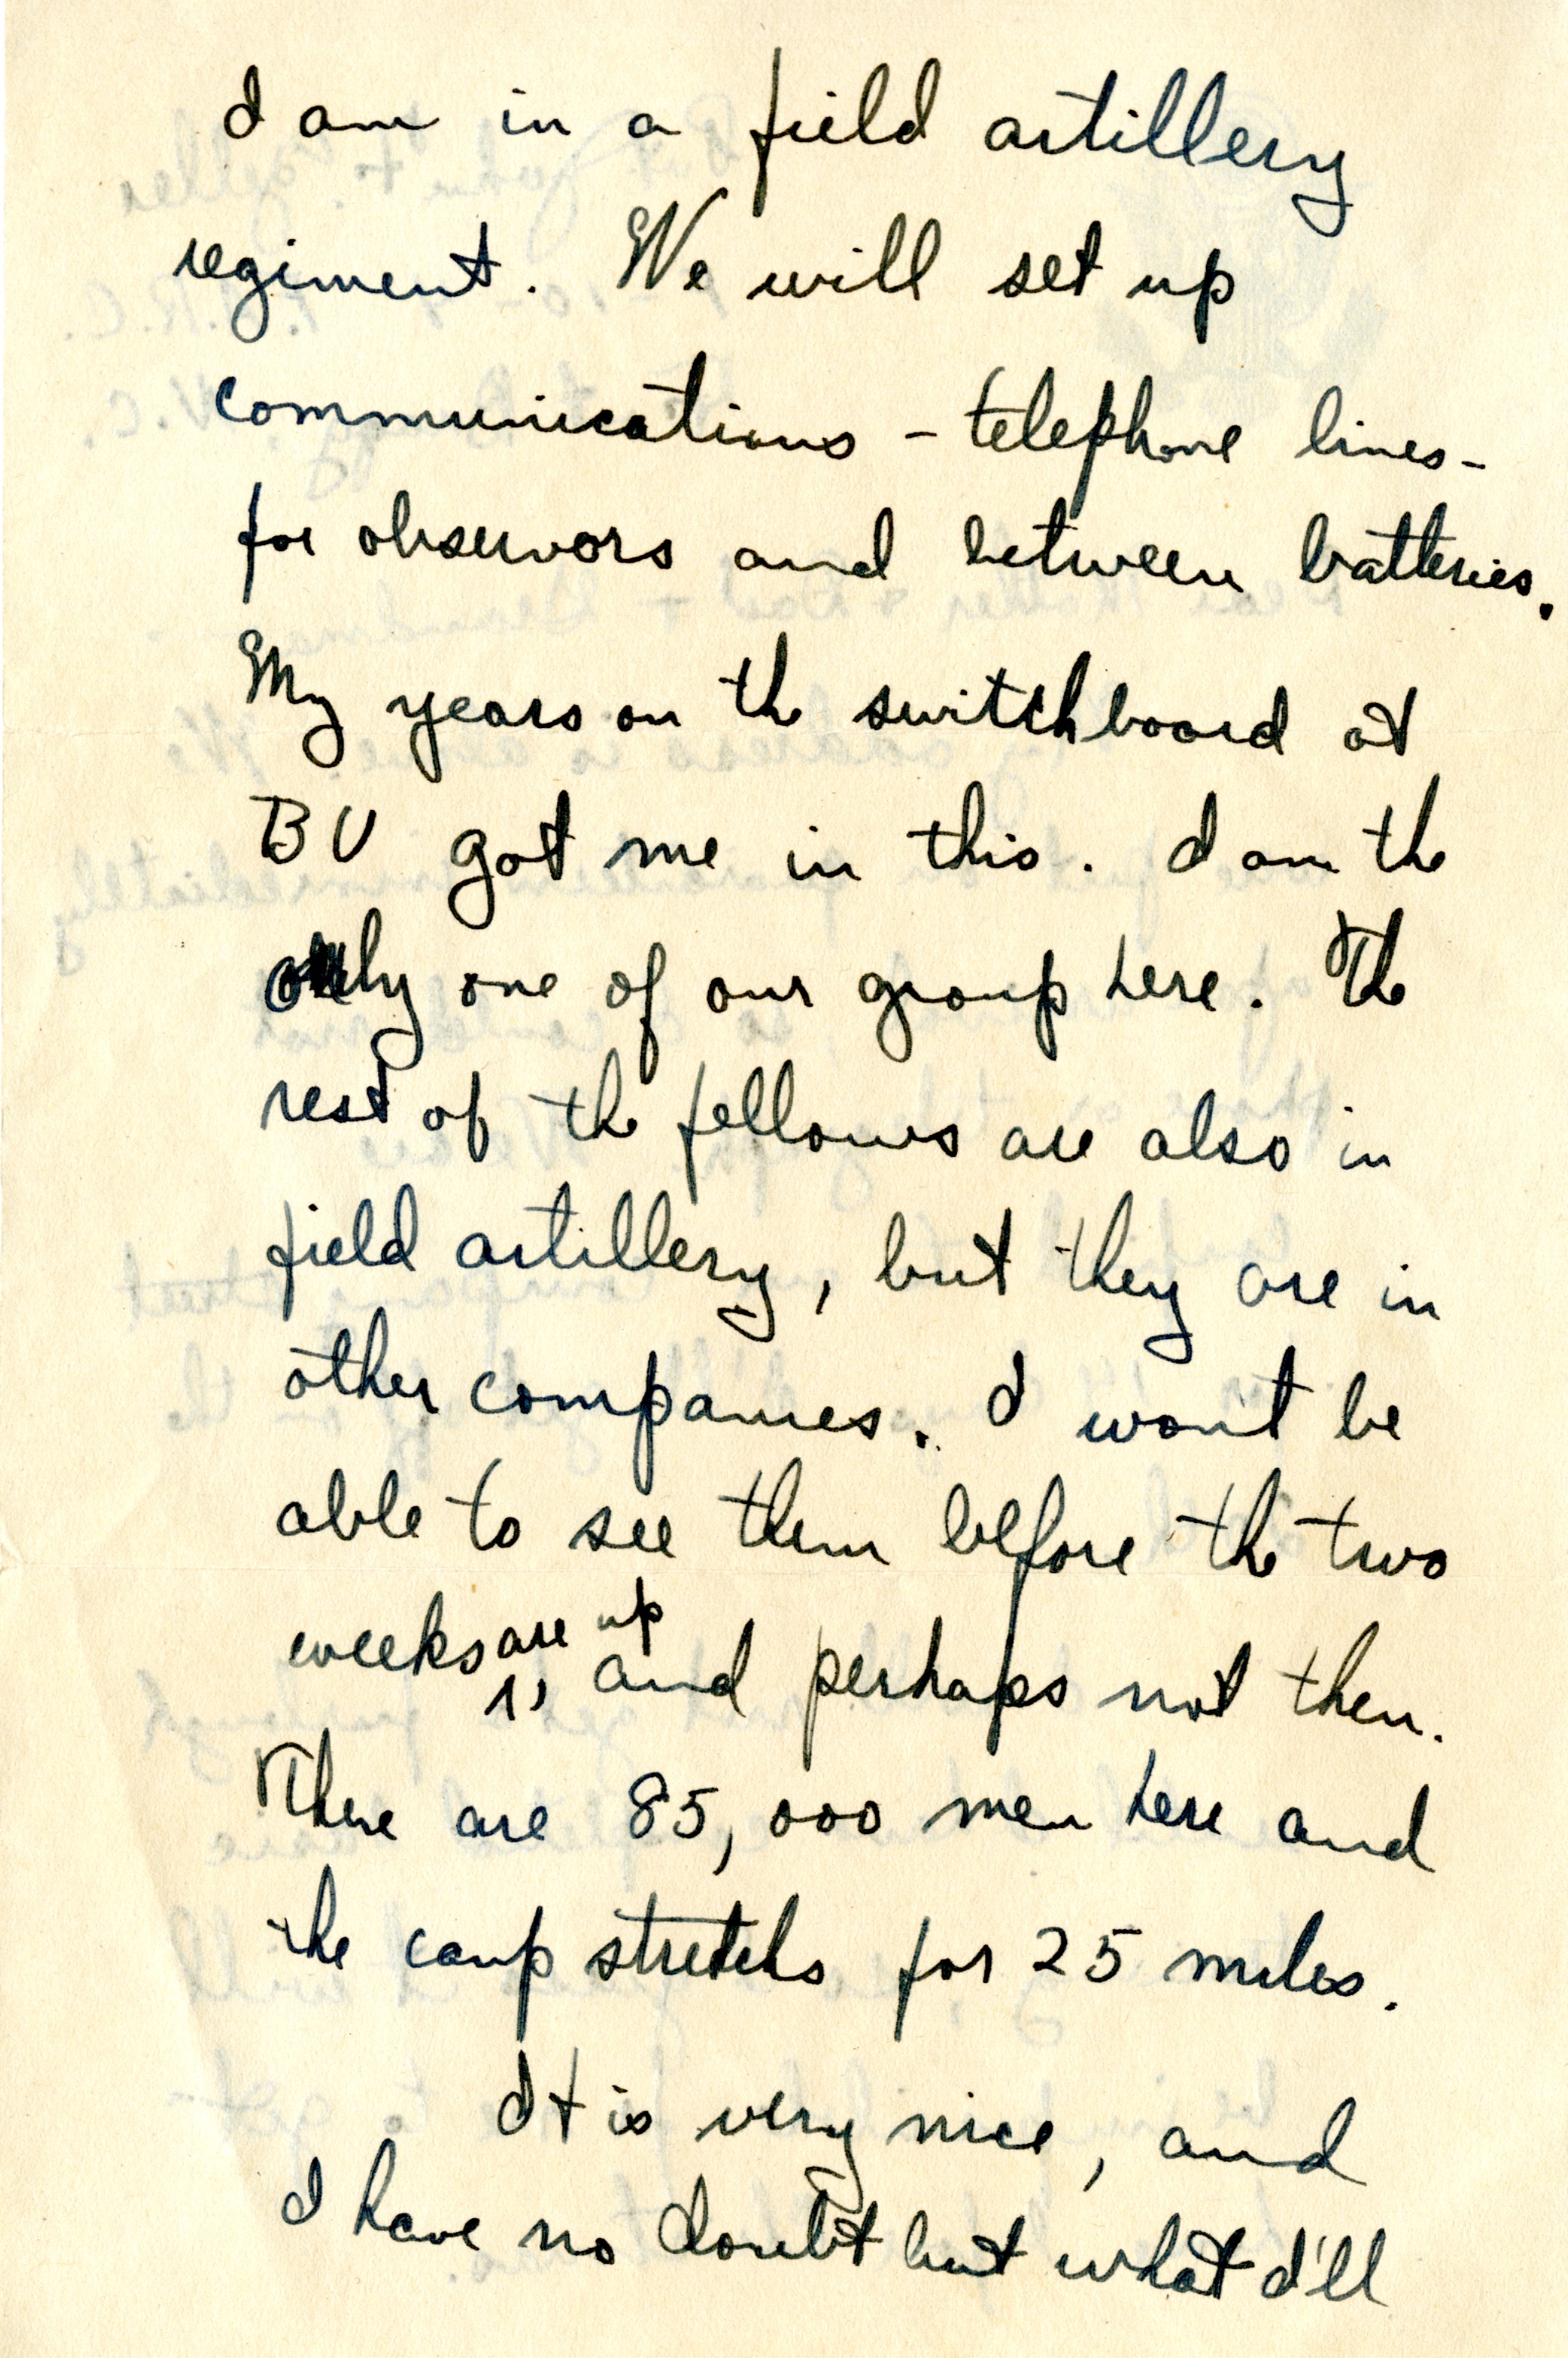 I am in a field artillery
regiment. We will set up
communications - telephone lines -
for observors and between batteries.
My years on the switchboard at
BV got me in this. I am the
only one of our group here. The
rest of the fellows are also in
field artillery, but they are in
other companies. I won't be
able to see them before the two
weeks are up, and perhaps not then.
There are 85,000 men here and
the camp stretchs for 25 miles.
It is very nice, and
I have no doubt but what I'll